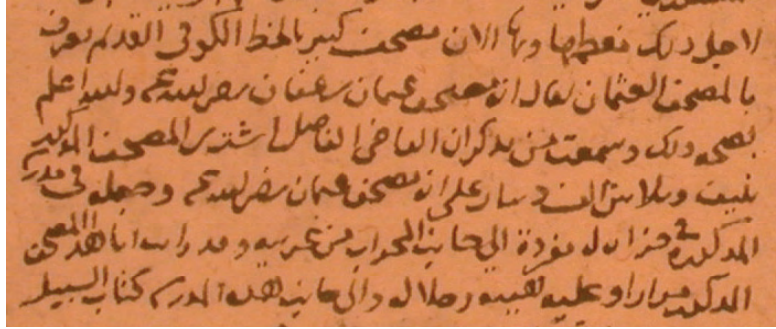 لاجل ذلك معظمها وبها الان مصحف كبير بالخط الكوفى القديم يعرف
بالمصحف العثمان يقال انه مصحف عثمان بن عفان رضى الله عنه والله اعلم
بصحه ذلك وسمعت من يذكر ان القاضى الفاضل اشترى المصحف المذكور
بنيف وثلاثين الف دينار على انه مصحف عثمان رضى الله عنه وجعله فى مدرسه
المذكوره فى خزانه مفردة الى جانب المحراب من غربيه وقد رايت انا هذا المصحف
المذكور مرارا وعليه هيبه وجلاله والى جانب هذه المدرسه كتاب السبيل